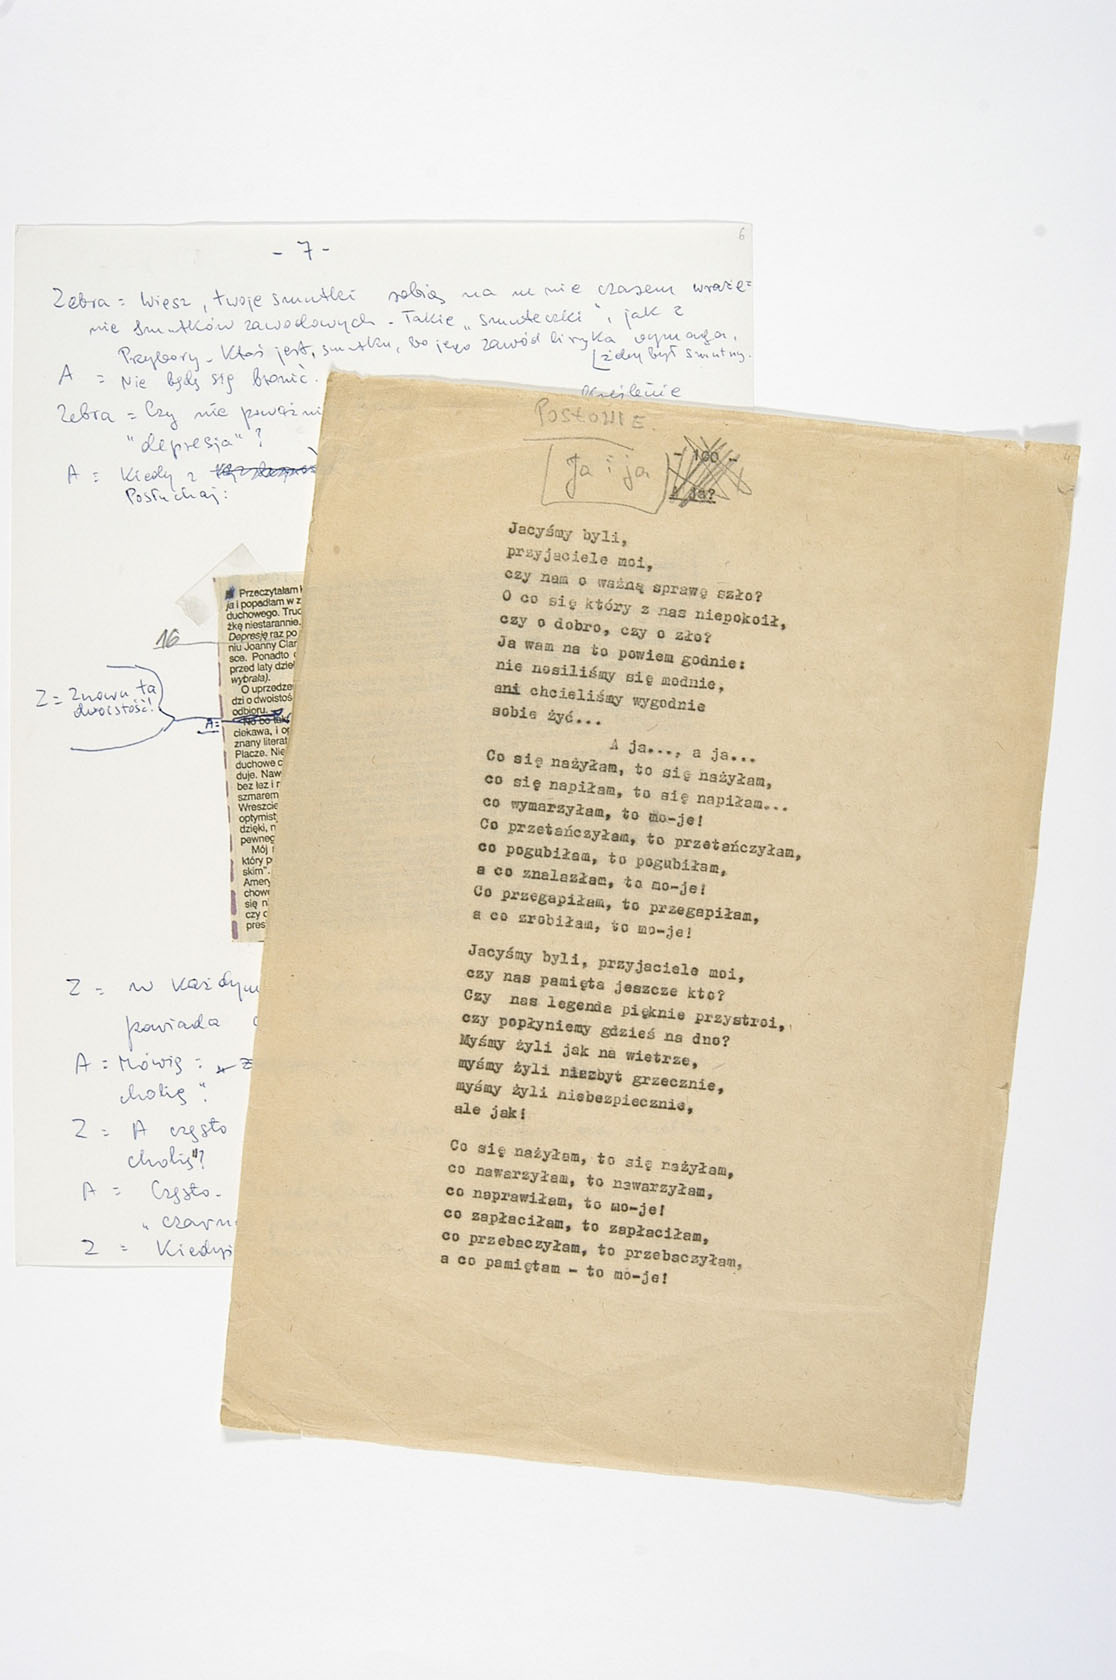 6
- 7 -
Zebra = Wiesz, twoje smutki robią na mnie czasem wraże=
nie smutków zawodowych - Takie „smuteczki", jak z
Przybory - Ktoś jest, smutku, bo jego zawód liryka wymaga,
żeby był smutny.
A = Nie będę się bronić.
określenie
Zebra = Czy nie poważni
"depresja"?
A = Kiedy z
Posłuchaj:
16
Przeczytałam
ja i popadłam w z
duchowego. Trud
żkę niestarannie.
Depresję raz po
niu Joanny Clar
sce. Ponadto
przed laty dzieł
wybrała).
O uprzedze
dzi o dwoistoś
odbioru.
Z = Znowu ta
dwoistość!
A =
No bo tak
ciekawa, i op
znany literat
Płacze. Nie
duchowe c
duje. Naw
bez łez i r
szmarem
Wreszcie
optymist
dzięki, n
pewneg
Mój
który p
skim".
Amery
chowe
się n
czy c
pres
Z = W każdym
powiada
A = Mówię: z
cholię"
Z = A często
cholię"?
A = Często-
„czarn
Z = Kiedyś
4
POSŁOWIE.
Ja i ja
- 100 -
A ja?
Jacyśmy byli,
przyjaciele moi,
czy nam o ważną sprawę szło?
O co się który z nas niepokoił,
czy o dobro, czy o zło?
Ja wam na to powiem godnie:
nie nosiliśmy się modnie,
ani chcieliśmy wygodnie
sobie żyć...
A ja..., a ja...
Co się nażyłam, to się nażyłam,
co się napiłam, to się napiłam...
co wymarzyłam, to mo-je!
Co przetańczyłam, to przetańczyłam,
co pogubiłam, to pogubiłam,
a co znalazłam, to mo-je!
Co przegapiłam, to przegapiłam,
a co zrobiłam, to mo-je!
Jacyśmy byli, przyjaciele moi,
czy nas pamięta jeszcze kto?
Czy nas legenda pięknie przystroi,
czy popłyniemy gdzieś na dno?
Myśmy żyli jak na wietrze,
myśmy żyli niezbyt grzecznie,
myśmy żyli niebezpiecznie,
ale jak!
Co się nażyłam, to się nażyłam,
co nawarzyłam, to nawarzyłam,
co naprawiłam, to mo-je!
co zapłaciłam, to zapłaciłam,
co przebaczyłam, to przebaczyłam,
a co pamiętam - to mo-je!